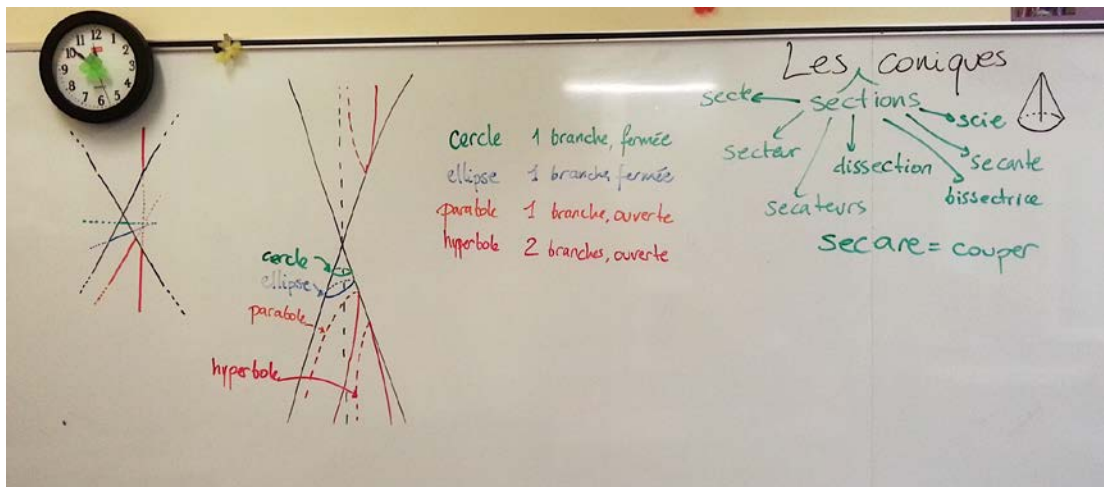 12
1
2
3
4
5
6
7
8
9
10
11
cercle
ellipse
parabole
hyperbole
cercle 1 branche, fermée
ellipse 1 branche, fermée
parabole 1 branche, ouverte
hyperbole 2 branches, ouverte
Les coniques
sections
secte
scie
secteur
dissection
secante
secateurs
bissectrice
secare = couper